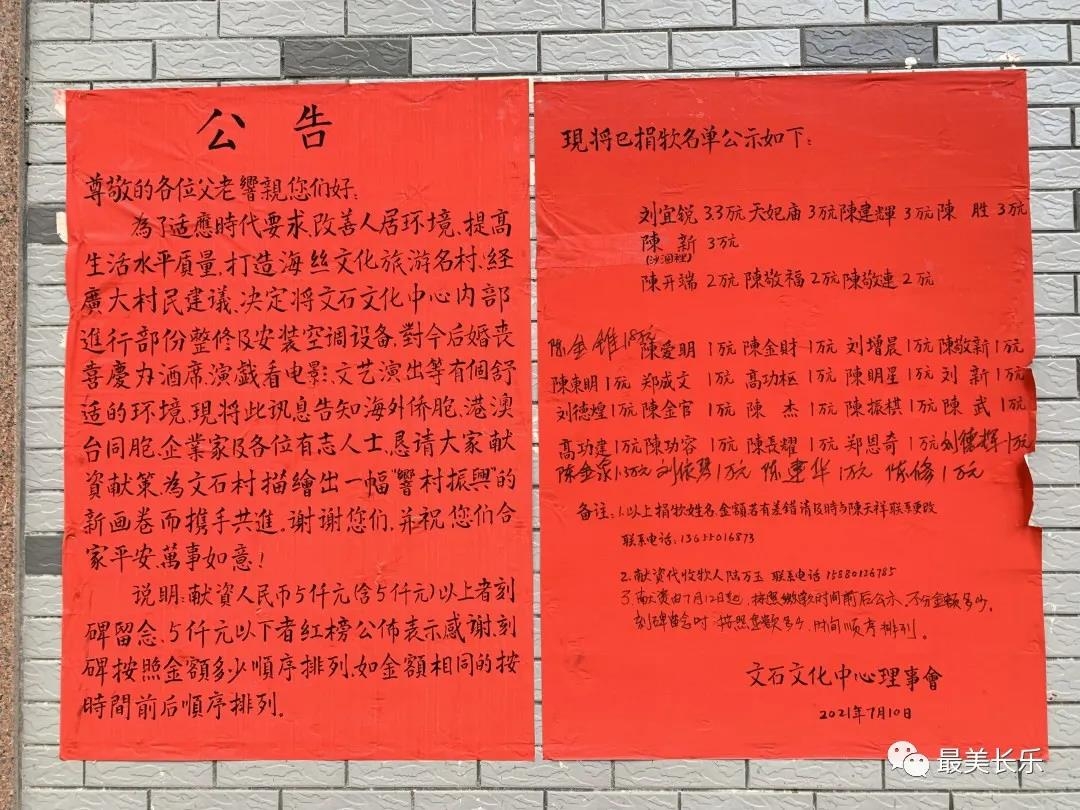 公告
尊敬的各位父老響親您们好:
為了适應時代要求、改善人居环境、提高
生活水平质量,打造海丝文化旅游名村、經
廣大村民建议、决定将文石文化中心内部
進行部份整修及安装空调设备、對今后婚丧
喜慶办酒席、演戲看电影、文艺演出等有個舒
适的环境、現将此讯息告知海外侨胞、港澳
台同胞、企業家及各位有志人士、恳请大家献
資献策、為文石村描繪出一幅“響村振興”的
新画卷而携手共進。谢谢您们、并祝您们合
家平安、萬事如意!
说明:献資人民币5仟元(含5仟元)以上者刻
碑留念、5仟元以下者紅榜公佈表示感谢、刻
碑按照金額多少順序排列、如金額相同的按
時間前后順序排列。
現将已捐款名单公示如下:
刘宜锐3.3万元 天妃庙3万元 陳建輝3万元 陳胜3万元
陳新3万元
陳开端2万元 陳敬福2万元 陳敬連2万元
陈金 陳爱明1万元 陳金財1万元 刘增晨1万元 陳敬新1万元
陳東明1万元 郑成文1万元 高功枢1万元 陳明星1万元 刘新1万元
刘德煌1万元 陳金官1万元 陳杰1万元 陳振棋1万元 陳武1万元
高功建1万元 陳功容1万元 陳長耀1万元 郑恩奇1万元 刘德辉1万元
陈金家1.5万元 1万元 陈建华1万元 陈修1万元
备注:1.以上捐款姓名、金額若有差错请及時与陳天祥联系更改
联系电话:13655016873
2.献资代收款人陆万玉 联系电话15880126785
3.献资由7月12日起,按照缴款时间前后公示,不分金额多少。
刻碑留念时按照金额多少、时间顺序排列。
文石文化中心理事會
2021年7月10日
最美长乐